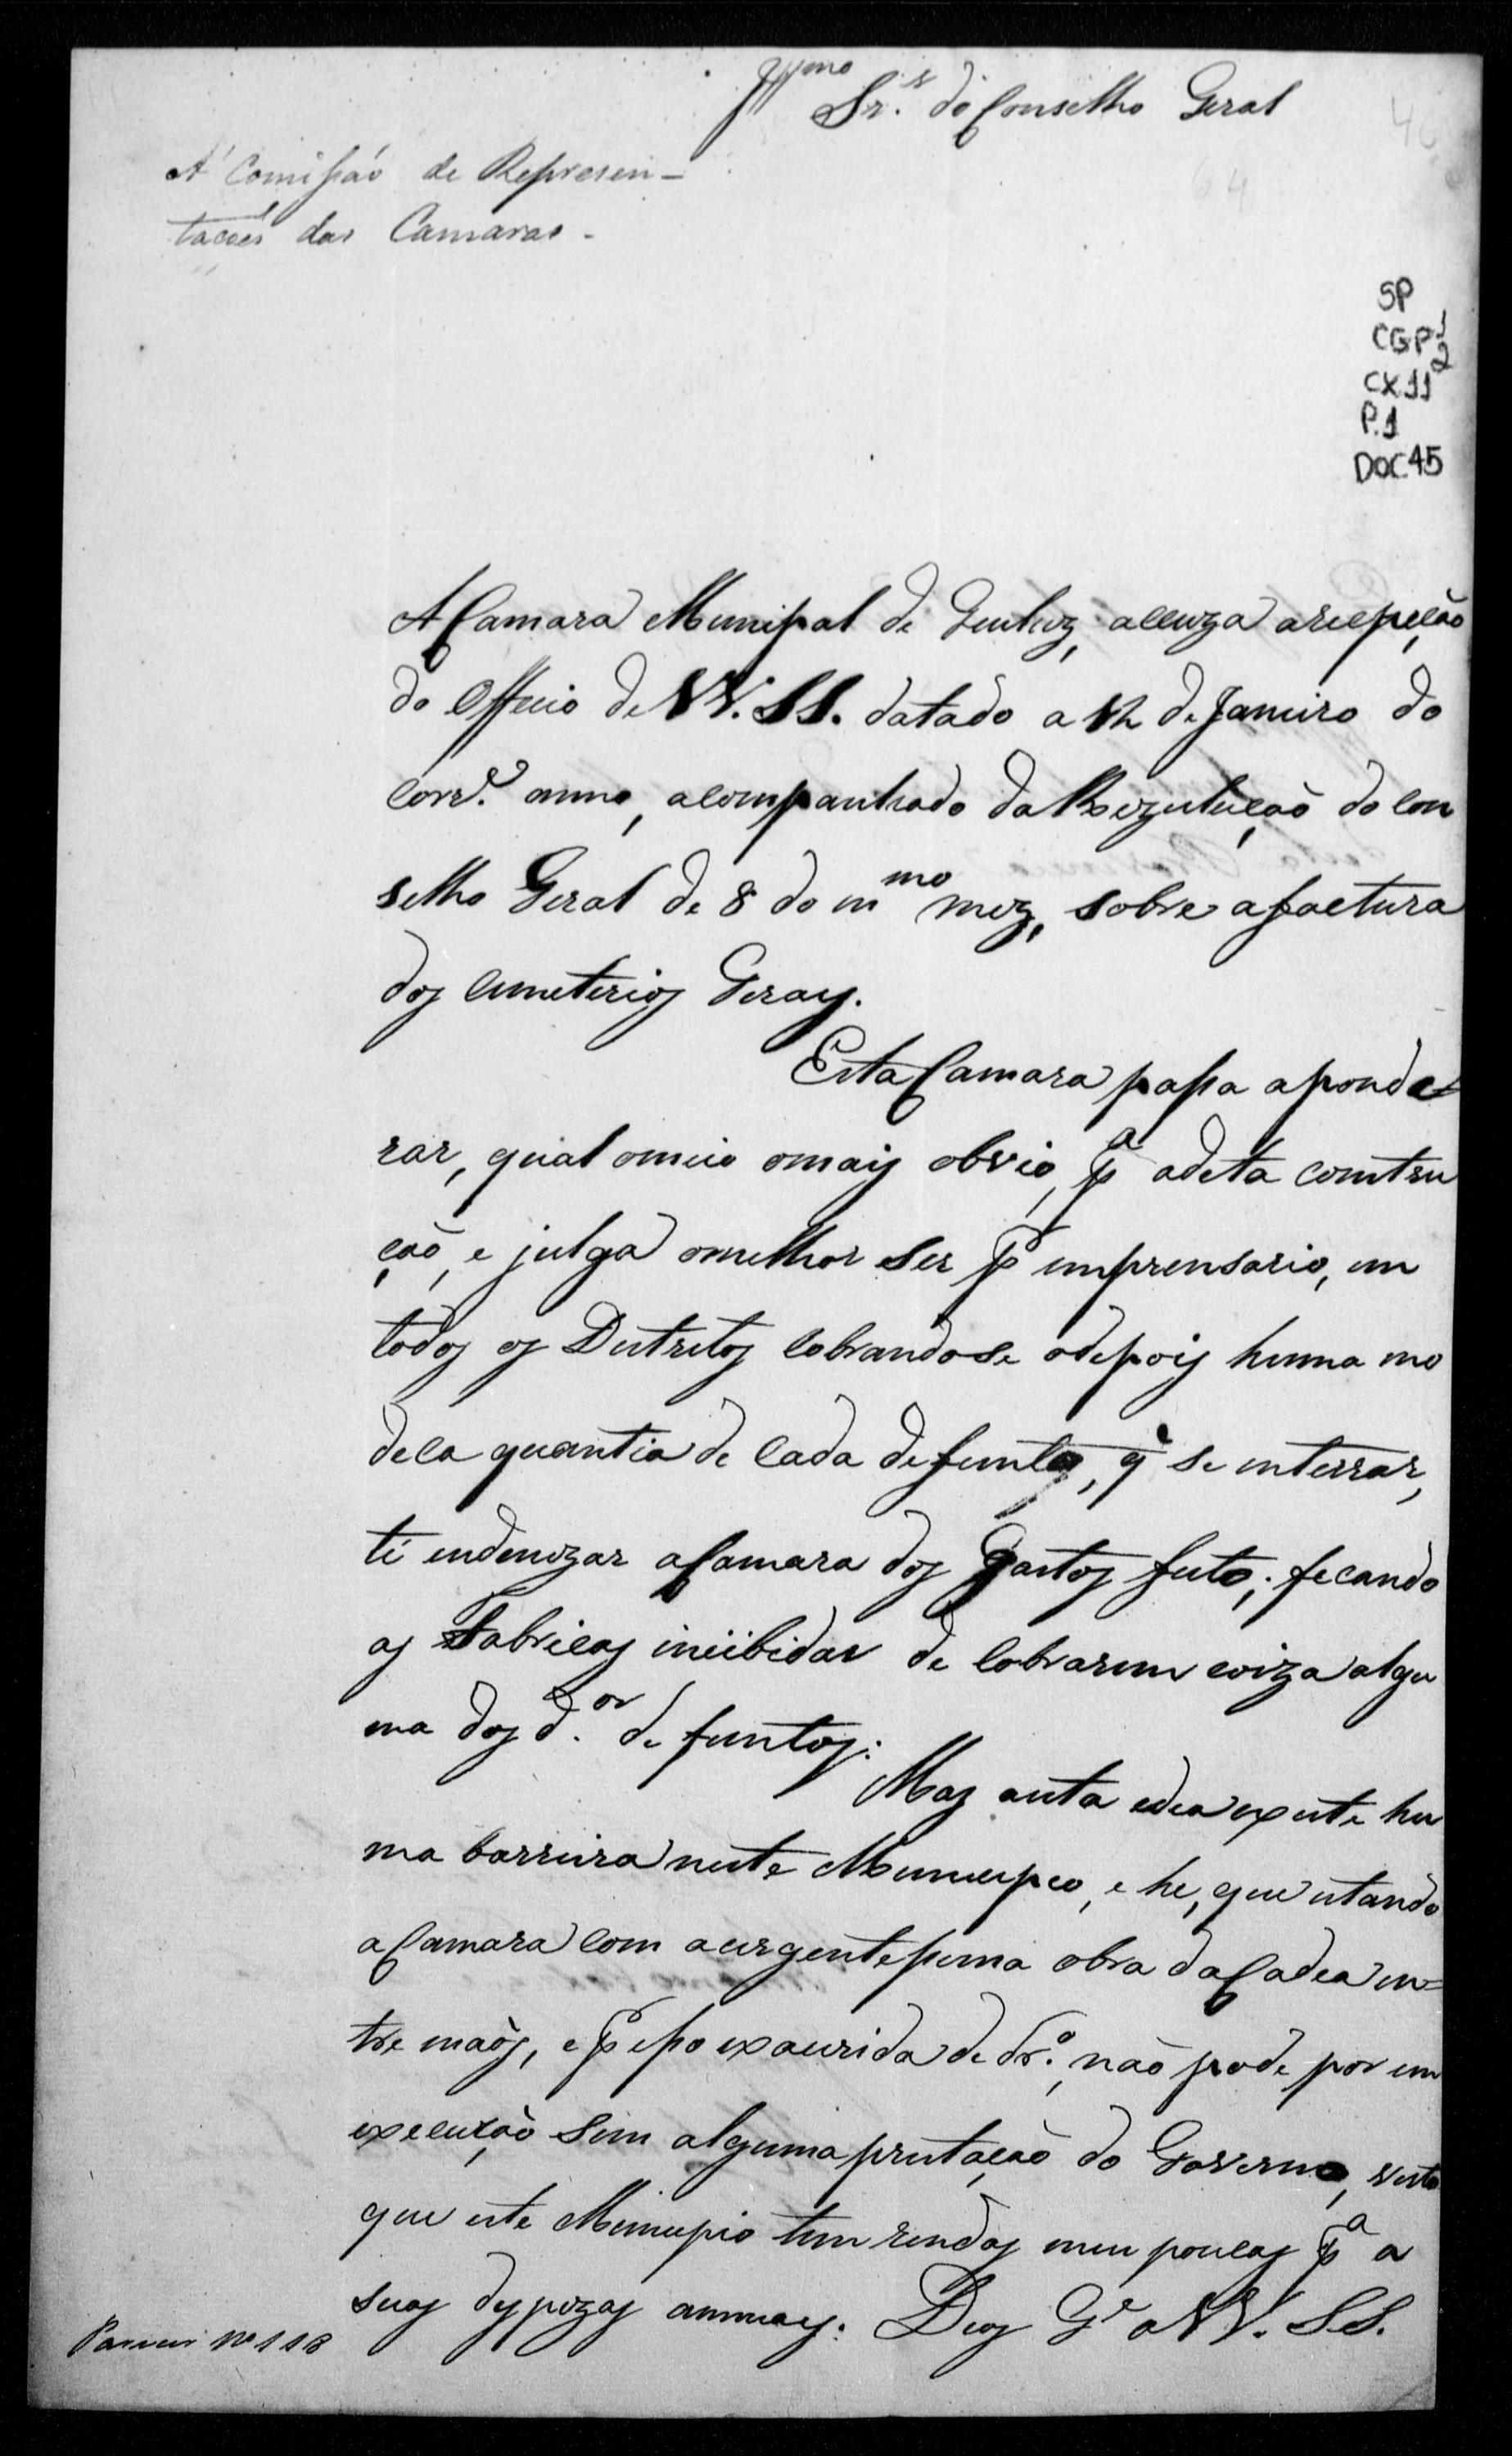 Illmos Srs. do Conselho Geral
A' Comissão de Represen-
tações das Camaras.
SP
CGP1
2
CX11
P.1
DOC45
A Camara Munipal de Queluz, acuza a recepção
do Officio de VV. SS. datado a 12 de Janeiro do
corre. anno, acompanhado da Rezulução do Con
selho Geral de 8 do mmo mez, sobre a factura
dos Cimeterios Geraes.
Esta Camara passa a ponde
rar, qual o meio o mais obvio, pa a desta comstru
ção, e julga o melhor ser pr. emprensario, em
todos os Destretos cobrandose o depois huma mo
deca quantia de cada defunto, q' se enterrar,
té endenizar a Camara dos Gastos feitos; fecando
as Fabricas ineibidas de cobrarem coiza algu
ma dos d.os defuntos.
Mas a esta edea existe hu
ma barreira neste Municipeo, e he, que estando
a Camara com a urgentessima obra da Cadea en=
tre maos, e pr. isso exaurida de dro., não pode por em
execução sem alguma prestação do Governo, visto
que este Municipio tem rendas mui poucas pa a
suas despezas annuaes. Deos Ge a VV. SS.
Parecer No 118